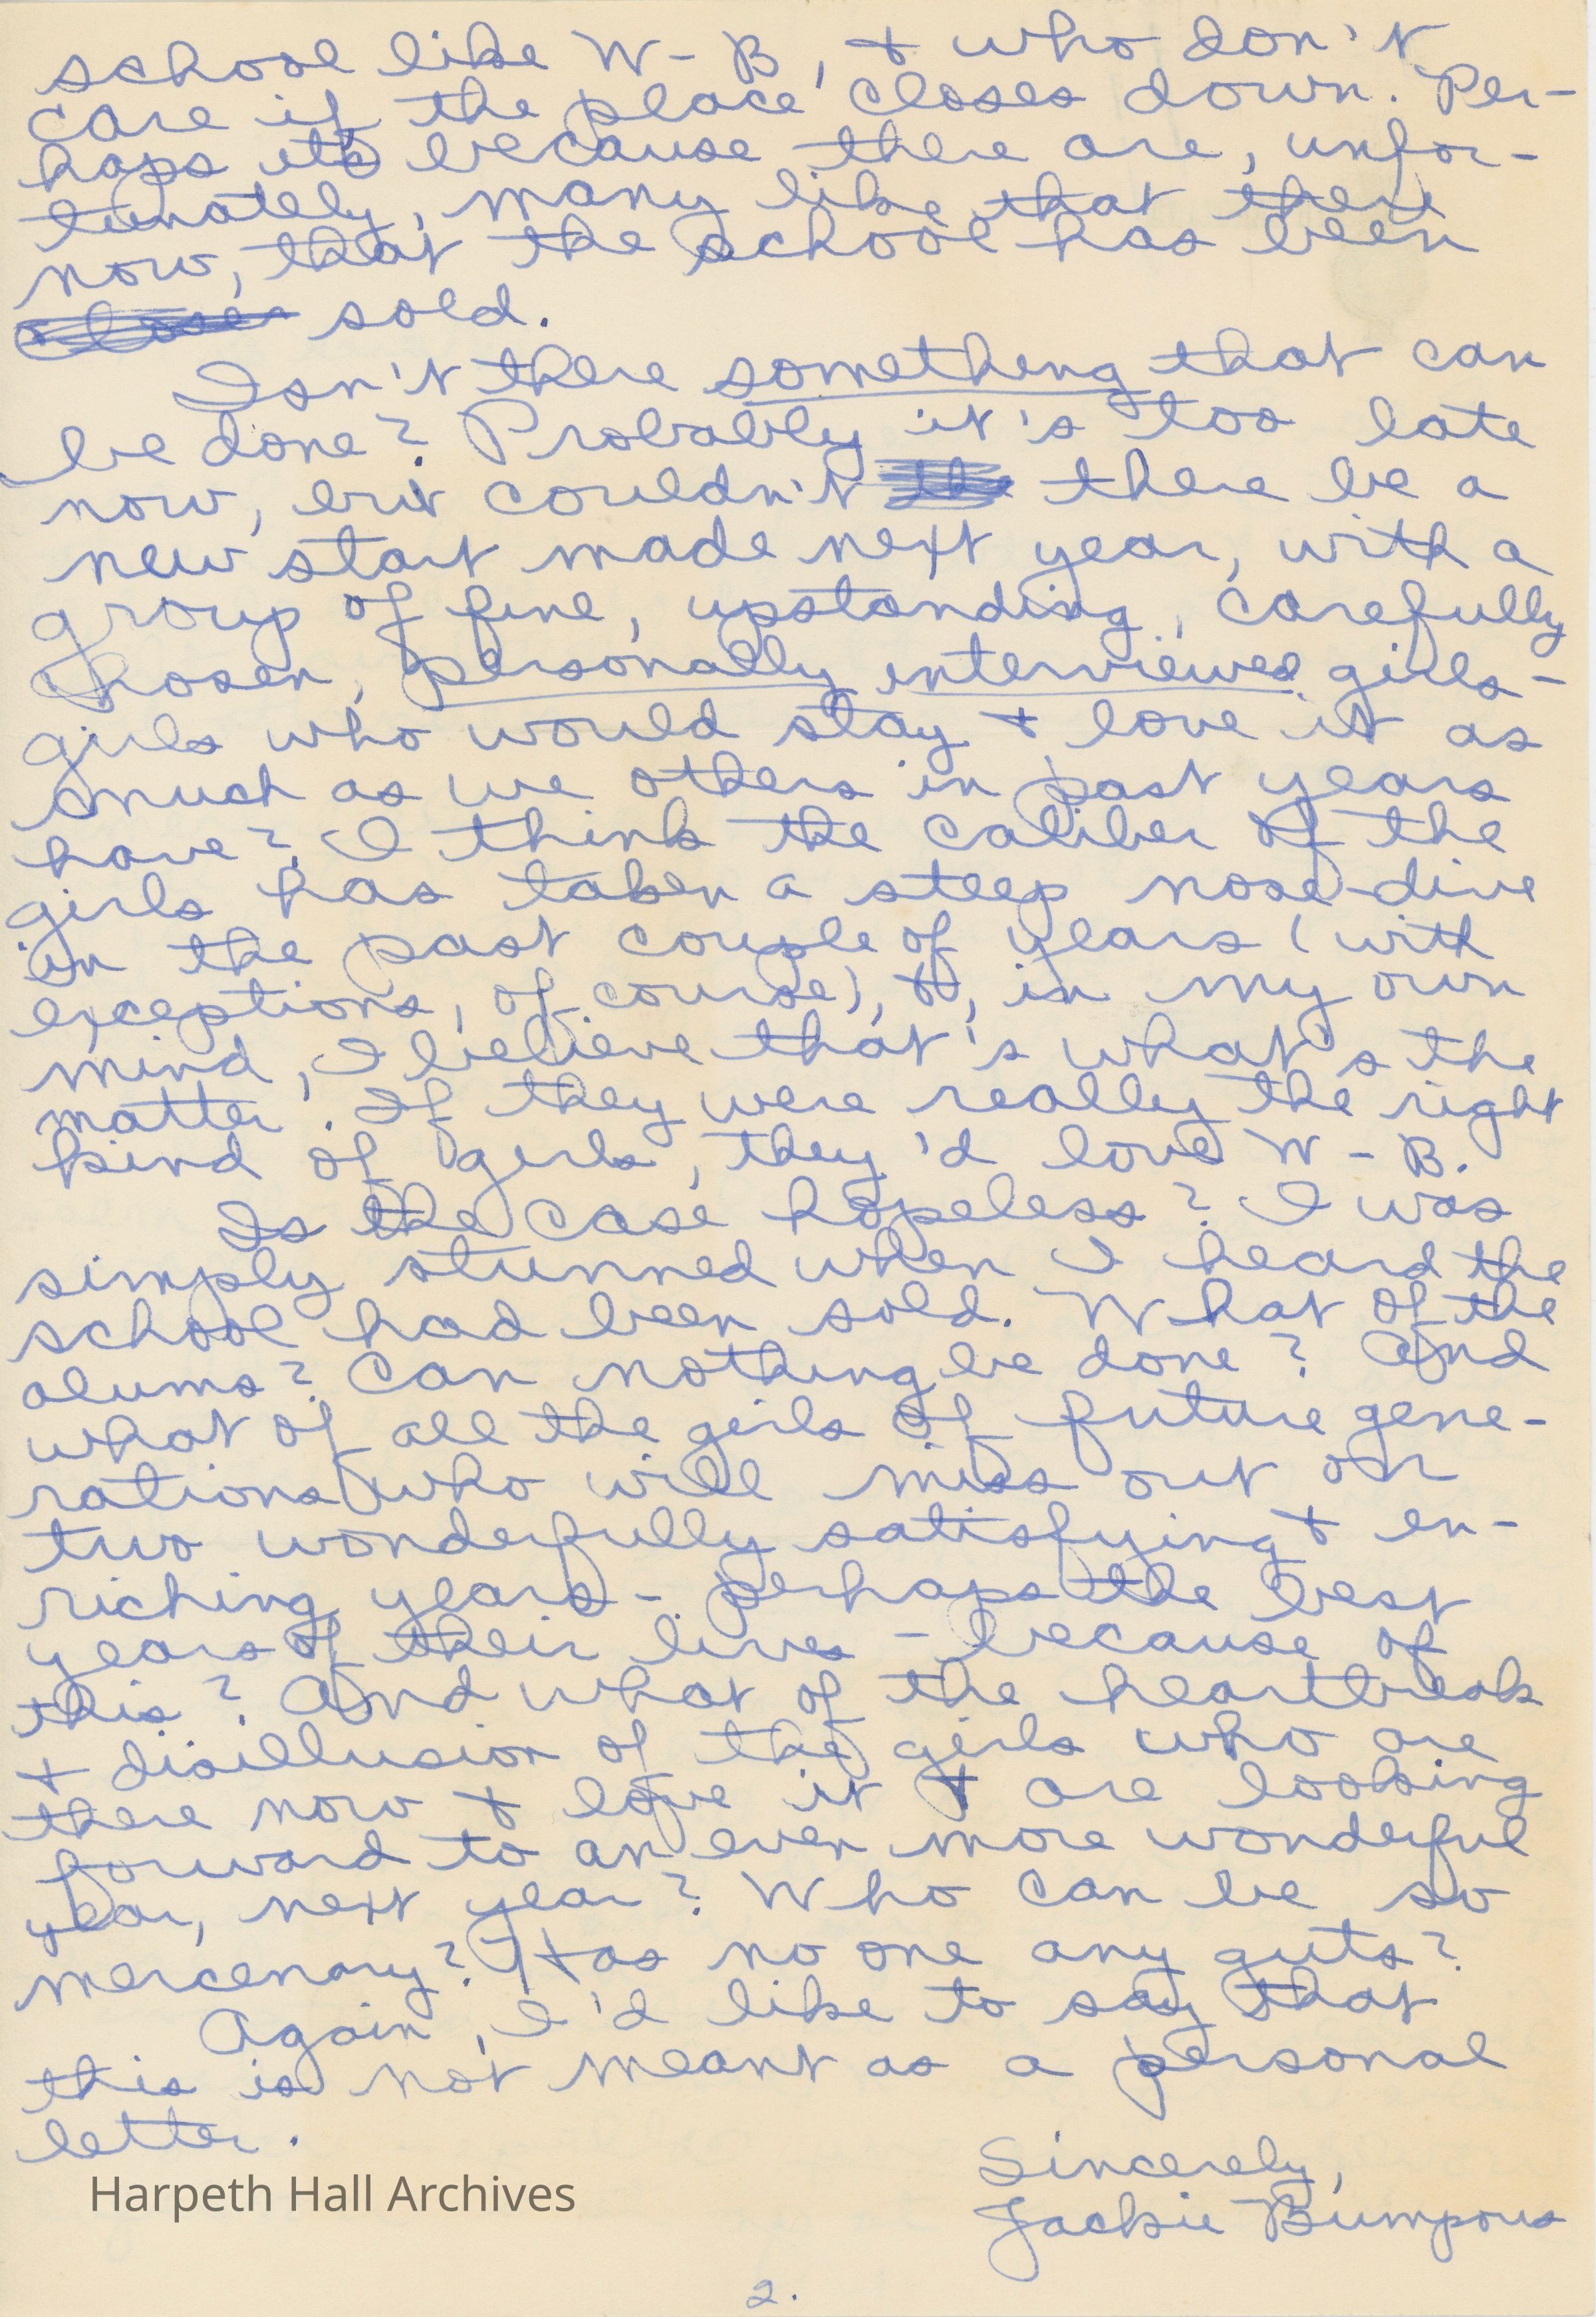 school like W-B, + who don't
care if the place closes down. Per-
haps it's because there are, unfor-
tunately, many like that there
now, that the school has been
sold.
Isn't there something that can
be done? Probably it's too late
now, but couldn't the there be a
new start made next year, with a
group of fine, upstanding, carefully
chosen, personally interviewed girls-
girls who would stay + love it as
much as we others in past years
have? I think the caliber of the
girls has taken a steep nose-dive
in the past couple of years (with
exceptions, of course), +, in my own
mind, I believe that's what's the
matter. If they were really the right
kind of girls, they'd love W-B.
Is the case hopeless? I was
simply stunned when I heard the
school had been sold. What of the
alums? Can nothing be done? And
what of all the girls of future gene-
rations who will miss out on
two wonderfully satisfying + en-
riching years - perhaps the best
years of their lives - because of
this? And what of the heartbreak
+ disillusion of the girls who are
there now + love it + are looking
forward to an even more wonderful
year, next year? Who can be so
mercenary? Has no one any guts?
Again, I'd like to say that
this is not meant as a personal
letter.
Sincerely,
Jackie Bumpous
Harpeth Hall Archives
2.